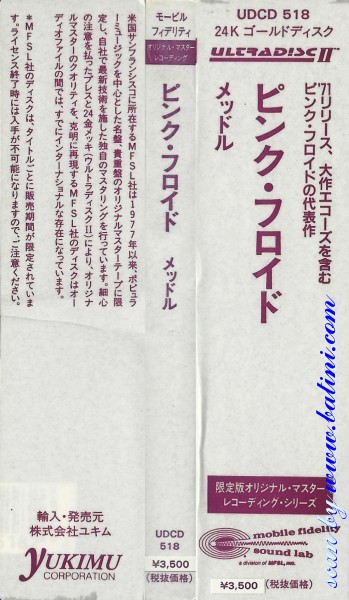 UDCD 518
24K ゴールドディスク
ULTRADISC II™
'71リリース、大作エコーズを含む
ピンク・フロイドの代表作
ピンク・フロイド
メッドル
限定版オリジナル・マスター
レコーディング・シリーズ
mobile fidelity
sound lab
a division of MFSL, INC.
¥3,500 (税抜価格)
モービル
フィデリティ
オリジナル・マスター
レコーディング
ピンク・フロイド メッドル
UDCD
518
¥3,500
(税抜価格)
米国サンフランシスコに所在するMFSL社は1977年以来、ポピュラ
ーミュージックを中心とした名盤、貴重盤のオリジナルマスターテープに限
定し、自社で最新技術を施した独自のマスタリングを行っています。細心
の注意を払ったプレスと24金メッキ(ウルトラディスクII)により、オリジナ
ルマスターのクオリティを、克明に再現するMFSL社のディスクはオー
ディオファイルの間では、すでにインターナショナルな存在になっています。
＊MFSL社のディスクは、タイトルごとに販売期間が限定されていま
す。ライセンス終了時には入手が不可能になりますので、ご注意ください。
輸入・発売元
株式会社ユキム
YUKIMU
CORPORATION
scan by www.batini.com